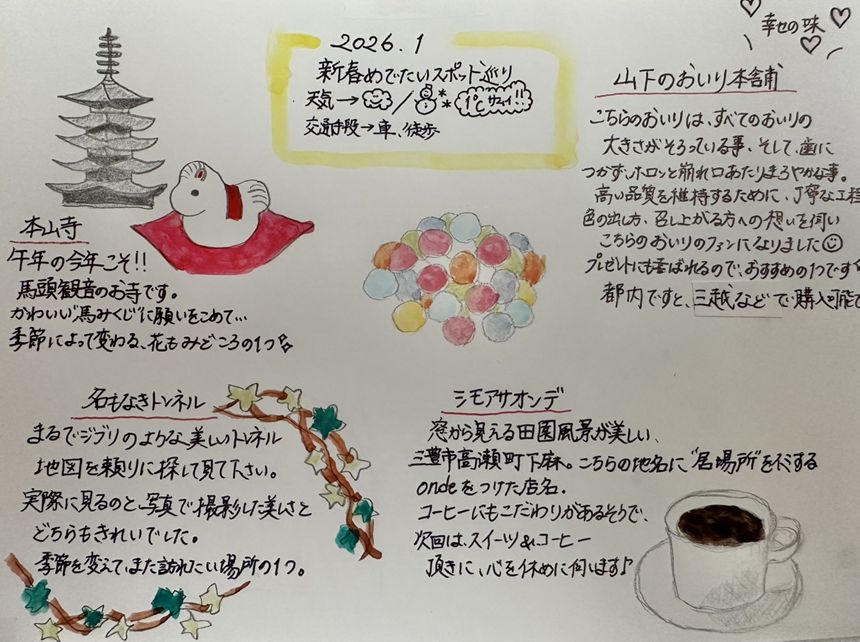 2026.1
新春めでたいスポット巡り
天気→ / * 1℃サムイ!!
交通手段→車、徒歩
幸せの味
山下のおいり本舗
こちらのおいりは、すべてのおいりの
大きさがそろっている事、そして、歯に
つかず、ホロッと崩れ口あたりまろやかな事。
高い品質を維持するために、丁寧な工程
色の出し方、召し上がる方への想いを伺い
こちらのおいりのファンになりました
プレゼントにも喜ばれるので、おすすめの1つです
都内ですと、三越などで購入可能で
本山寺
午年の今年こそ!!
馬頭観音のお寺です。
かわいい"馬みくじ"に願いをこめて…
季節によって変わる、花もみどころの1つ
名もなきトンネル
まるでジブリのような美しいトンネル
地図を頼りに探して見て下さい。
実際に見るのと、写真で撮影した美しさと
どちらもきれいでした。
季節を変えて、また訪れたい場所の1つ。
シモアサオンデ
窓から見える田園風景が美しい、
三豊市高瀬町下麻。こちらの地名に"居場所"を意味する
ondeをつけた店名.
コーヒーにもこだわりがあるそうで、
次回は、スイーツ&コーヒー
頂きに、心を休めに伺います♪